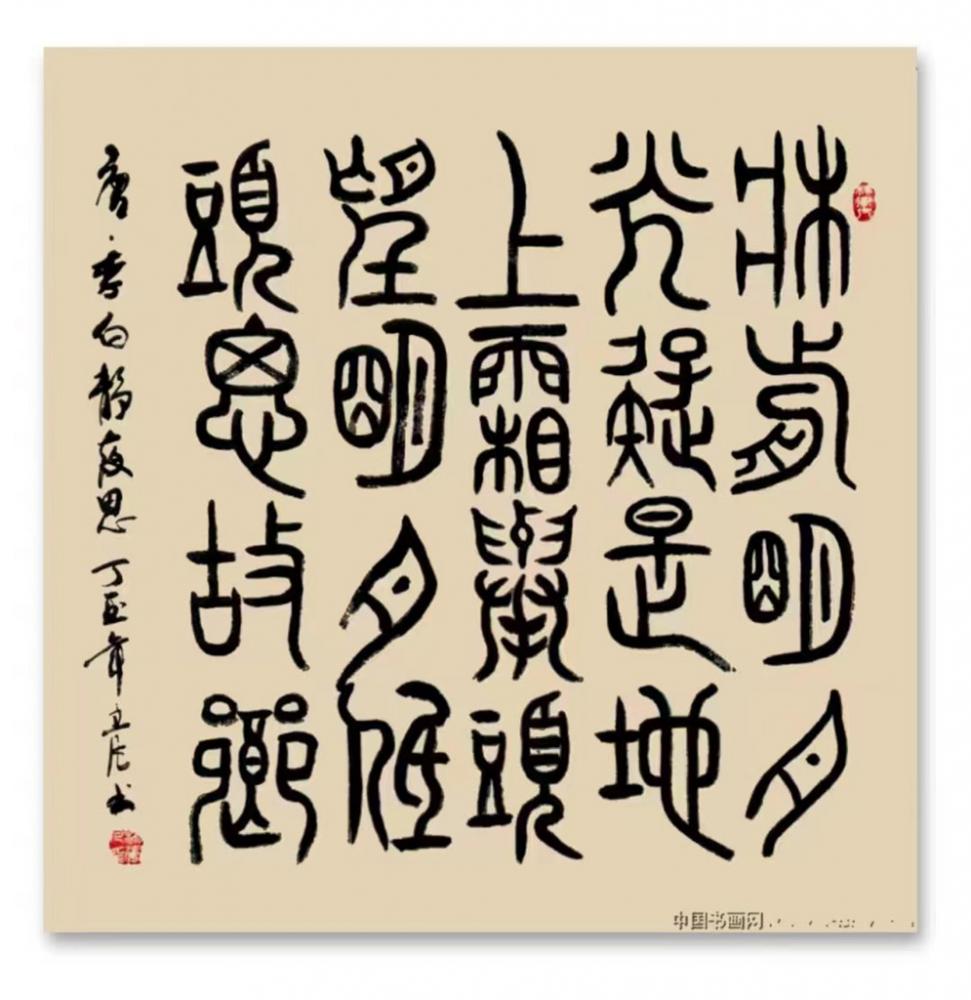 牀前明月
光疑是地
上霜舉頭
望明月低
頭思故鄉
唐·李白静夜思 丁酉年 书
中国书画网